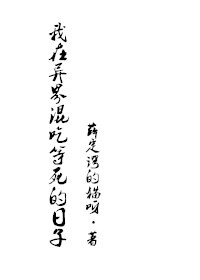 我在异界混吃等死的日子
薛定谔的猫呀·著